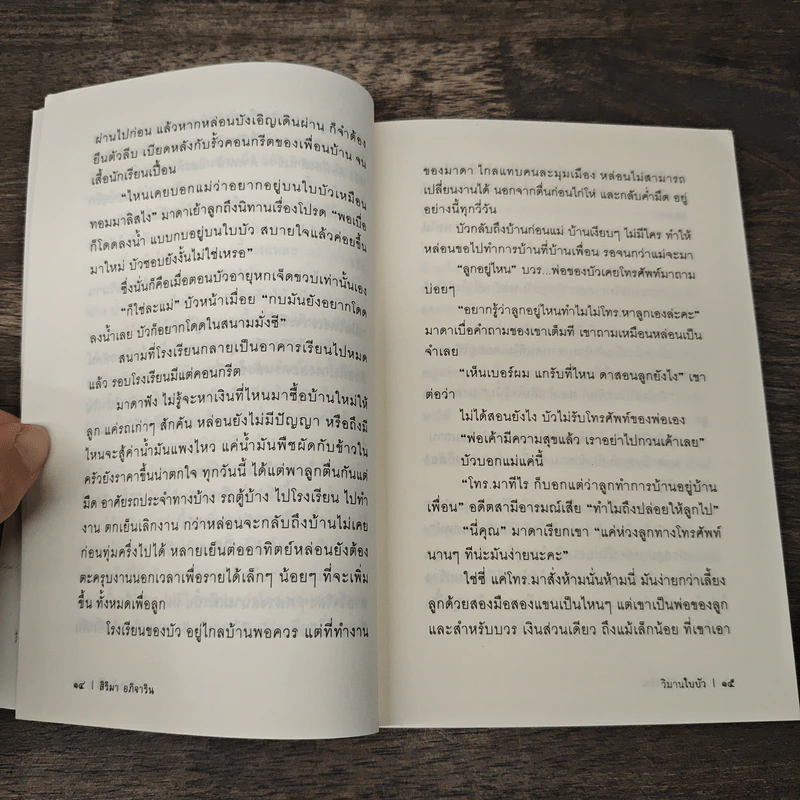 ผ่านไปก่อน แล้วหากหล่อนบังเอิญเดินผ่าน ก็จำต้อง
ยืนตัวลีบ เบียดหลังกับรั้วคอนกรีตของเพื่อนบ้าน จน
เสื้อนักเรียนเปื้อน
“ไหนเคยบอกแม่ว่าอยากอยู่บนใบบัวเหมือน
ทอมมาลิสไง” มาดาเย้าลูกถึงนิทานเรื่องโปรด “พอเบื่อ
ก็โดดลงน้ำ แบบกบอยู่บนใบบัว สบายใจแล้วค่อยขึ้น
มาใหม่ บัวชอบยังงั้นไม่ใช่เหรอ”
ซึ่งนั่นก็คือเมื่อตอนบัวอายุหกเจ็ดขวบเท่านั้นเอง
“ก็ใช่ละแม่” บัวหน้าเมื่อย “กบมันยังอยากโดด
ลงน้ำเลย บัวก็อยากโดดในสนามมั่งซี”
สนามที่โรงเรียนกลายเป็นอาคารเรียนไปหมด
แล้ว รอบโรงเรียนมีแต่คอนกรีต
มาดาฟัง ไม่รู้จะหาเงินที่ไหนมาซื้อบ้านใหม่ให้
ลูก แค่รถเก่าๆ สักคัน หล่อนยังไม่มีปัญญา หรือถึงมี
ไหนจะสู้ค่าน้ำมันแพงไหว แค่น้ำมันพืชผัดกับข้าวใน
ครัวยังราคาขึ้นน่าตกใจ ทุกวันนี้ ได้แต่พาลูกตื่นกันแต่
มืด อาศัยรถประจำทางบ้าง รถตู้บ้าง ไปโรงเรียน ไปทำ
งาน ตกเย็นเลิกงาน กว่าหล่อนจะกลับถึงบ้านไม่เคย
ก่อนทุ่มครึ่งไปได้ หลายเย็นต่ออาทิตย์หล่อนยังต้อง
ตะครุบงานนอกเวลาเพื่อรายได้เล็กๆ น้อยๆ ที่จะเพิ่ม
ขึ้น ทั้งหมดเพื่อลูก
โรงเรียนของบัว อยู่ไกลบ้านพอควร แต่ที่ทำงาน
๑๔ | สิริมา อภิจาริน
ของมาดา ไกลแทบคนละมุมเมือง หล่อนไม่สามารถ
เปลี่ยนงานได้ นอกจากตื่นก่อนไก่โห่ และกลับค่ำมืด อยู่
อย่างนี้ทุกวี่วัน
บัวกลับถึงบ้านก่อนแม่ บ้านเงียบๆ ไม่มีใคร ทำให้
หล่อนขอไปทำการบ้านที่บ้านเพื่อน รอจนกว่าแม่จะมา
“ลูกอยู่ไหน” บวร...พ่อของบัวเคยโทรศัพท์มาถาม
บ่อยๆ
“อยากรู้ว่าลูกอยู่ไหนทำไมไม่โทร.หาลูกเองล่ะคะ”
มาดาเบื่อคำถามของเขาเต็มที เขาถามเหมือนหล่อนเป็น
จำเลย
“เห็นเบอร์ผม แกรับที่ไหน ดาสอนลูกยังไง” เขา
ต่อว่า
ไม่ได้สอนยังไง บัวไม่รับโทรศัพท์ของพ่อเอง
“พ่อเค้ามีความสุขแล้ว เราอย่าไปกวนเค้าเลย”
บัวบอกแม่แค่นี้
“โทร.มาทีไร ก็บอกแต่ว่าลูกทำการบ้านอยู่บ้าน
เพื่อน” อดีตสามีอารมณ์เสีย “ทำไมถึงปล่อยให้ลูกไป”
“นี่คุณ” มาดาเรียกเขา “แค่ห่วงลูกทางโทรศัพท์
นานๆ ทีน่ะมันง่ายนะคะ”
ใช่ซี่ แค่โทร.มาสั่งห้ามนั่นห้ามนี่ มันง่ายกว่าเลี้ยง
ลูกด้วยสองมือสองแขนเป็นไหนๆ แต่เขาเป็นพ่อของลูก
และสำหรับบวร เงินส่วนเดียว ถึงแม้เล็กน้อย ที่เขาเอา
วิมานใบบัว | ๑๕